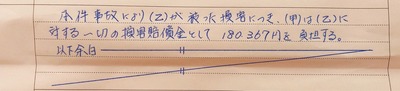 本件事故により(乙)が被った損害につき、(甲)は(乙)に
対する一切の損害賠償金として 180,367円を負担する。
以下余白